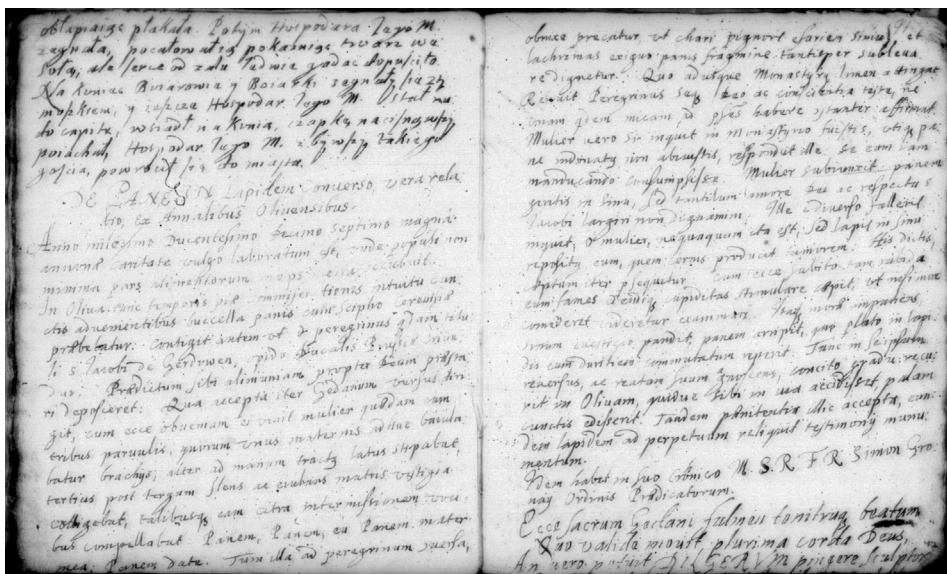 obłapiaiąc płakała. Potym Hospodara Iego M.
żegnała, pocałowała pokaźniąc twarz we
ale serce od żalu ledwie gadać dopuściło.
Na koniec Boiarowie y Boiarki żegnały się z Je
mością, y ieszcze Hospodar Iego M. Vstał na
wsiadł na Konia, czapkę nacisnąwszy
poiachał, Hospodar Iego M. zbywszy takiego
gościa, powrócił się do miasta.
DE PANE IN Lapidem converso, vera rela
tio, Ex Annalibus Olivensibus.
Anno milesimo Ducentesimo Decimo septimo magna
annonæ caritate vulgo laboratum est, unde populi non
minima pars alimentorum inops
In Oliva tunc temporis piæ intuitu cun
ctis advenientibus buccella panis cum scipho Cerevisiæ
præbebatur: contigit autem ut peregrinus titu
li S. Jacobi de opido Ducalis Prussiæ
dus. Prædictum sibi alimoniam propter Deum præsta
ri deposceret: Qua accepta iter Gedanum versus diri
git, cum ecce obviam ei venit mulier quædam cum
tribus parvulis, quorum unus maternis adhuc baiula
batur brachys, alter ad manum tractus latus stipabat,
tertius post tergum flens ac eiulans matris vestigia
colligebat, talibusq eam citra intermissionem voci
bus compellabat Panem, Panem, eu Panem mater
mea, Panem date. Tum illa ad peregrinum versa,
obnixe precatur, ut chari pignoris esuriei sinui, et
lachrimas exigui panis fragmine tantisper subleva
re dignetur. Quo adusque Monastyry limen attingat
Renuit Peregrinus se Deo ac conscientia teste, ne
unam quidem micam ad habere constanter affirmat.
Mulier vero Sir inquit in Monastyrio fuistis, utiq pa
ne indonatus non abivistis, respondit ille. Se eum iam
manducando consumpsisse. Mulier subiunxit panem
geritis in sinu, sed tantillum amore Dei ac respectu S
Iacobi largiri non dignamini. Ille ediverso falleris
inquit, o mulier, nequaquam ita est, sed lapis in sinu
repositus eum, quem cernis producit tumorem. His dictis
cæptum iter prsequitur. Cum ecce subito tam rabida
eum fames cupiditas stimulare cæpit, ut nisi mox
comederet videretur exanimari. Itaq moræ impatiens,
sinum vestigio pandit, panem arripit, quo plato in lapi
dis eum duritiem commutatum reperit. Tunc in se ipsum
reversus, ac reatum suum agnoscens, concito gradu recur
rit in Olivam, quidve sibi in via accidisset, palam
cunctis edisserit. Tandem pænitentia illic accepta, eun
dem lapidem ad perpetuum reliquit testimonij monu
mentum.
Idem habet in suo Chronico M. S. R. F. R. Simon Gro
nay Ordinis Prædicatorum.
Ecce sacrum Goclani fulmen tonitruq beatum
Quo valide movit plurima corda Deus,
An vero potuit pingere sculptor